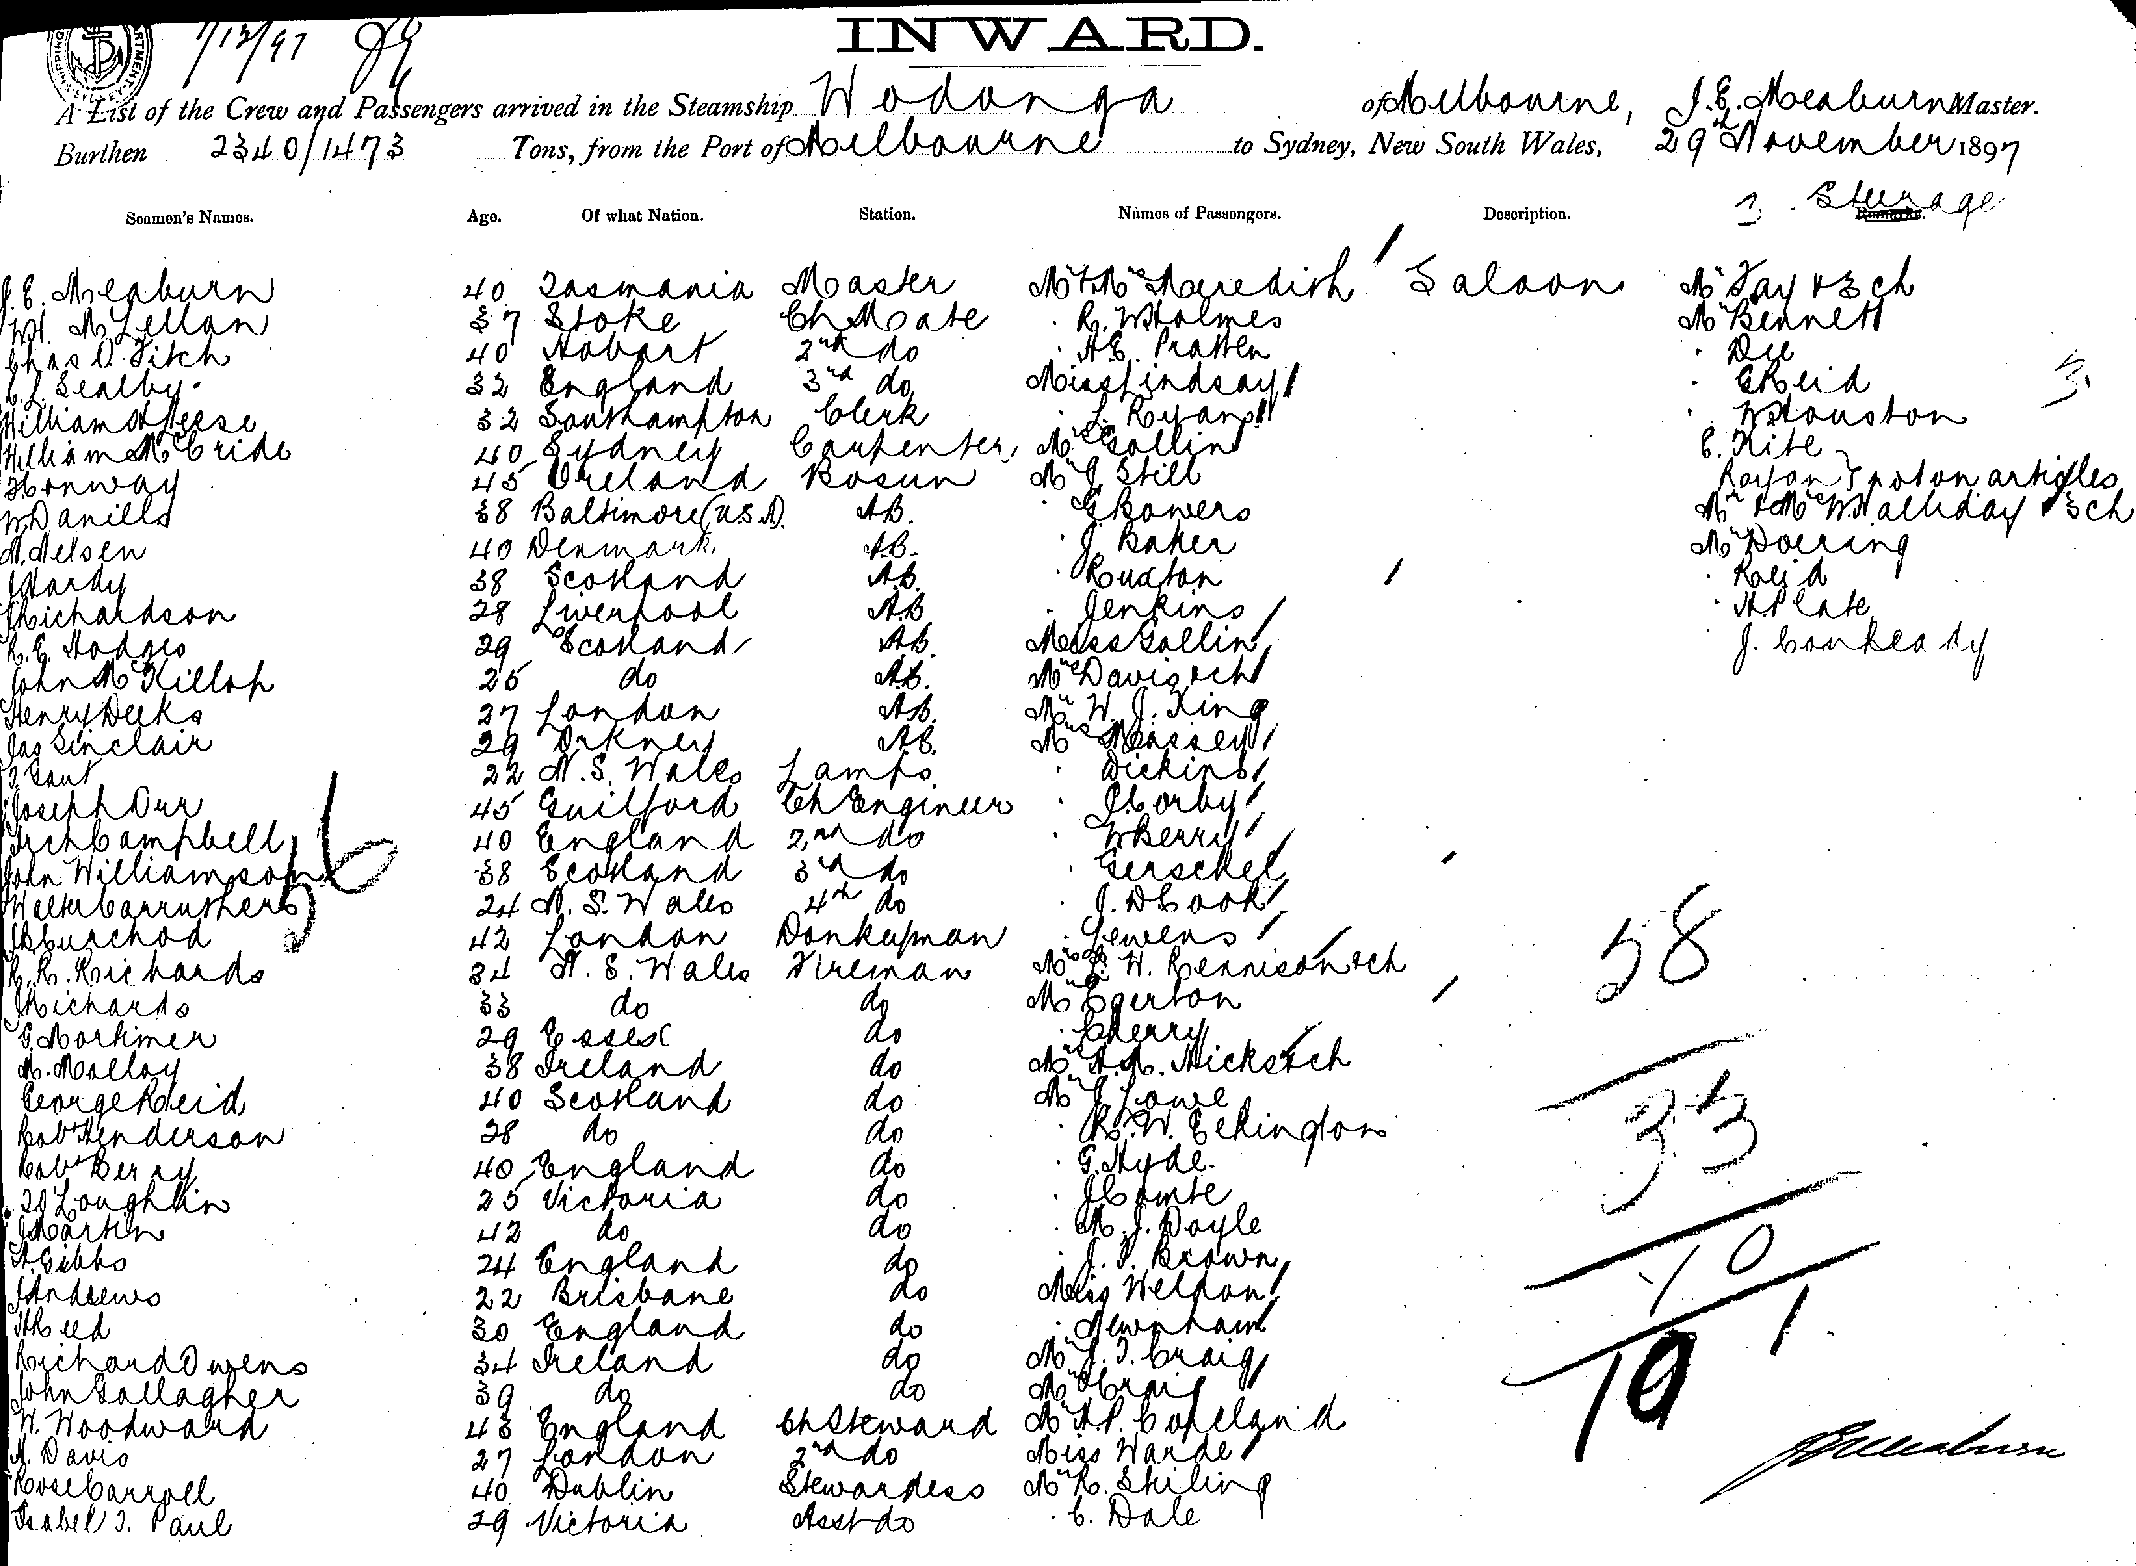 INWARD.
1/12/97
A List of the Crew and Passengers arrived in the Steamship Wodonga of Melbourne, J. E. Meaburn Master.
Burthen 2340/1473 Tons, from the Port of Melbourne to Sydney, New South Wales, 29th November 1897
Seamen's Names. Age. Of what Nation. Station. Names of Passengers. Description. Remarks. 3 Steerage
J. E. Meaburn 40 Tasmania Master Mr & Mrs Meredith Saloon Mrs Fay & 3 ch
Wm. McLellan 37 Stoke Ch Mate " R. W Holmes Mr Bennett
Chas D. Fitch 40 Hobart 2nd do " A E. Pratten " Dee
C. L. Sealby 32 England 3rd do Miss Lindsay " G Reid
William A Leese 32 Southampton Clerk " L. Ryan " W Houston
William McBride 40 Sydney Carpenter Mrs Gollin C. Kite
Honway 45 Ireland Bosun Mr J. Still Rayon } not on articles
W Daniells 38 Baltimore (U.S.A). A.B. " G Bowers Mr & Mrs W Halliday & 3 ch
N. Nelsen 40 Denmark A.B. " J. Baker Mr Doering
J Hardy 38 Scotland A.B. " Buxton " Reid
J Richardson 28 Liverpool A.B " Jenkins " A Plate
R. C. Hodges 29 Scotland A.B. Miss Gollin " J. Conheady
John McKillop 25 do A.B. Mrs Davis & ch
Henry Deeks 27 London A.B. Mrs W. J. King
Jas Sinclair 29 Orkney A.B. Mrs Massey
T Gaut 22 N. S. Wales Lamps " Dickins
Joseph Orr 45 Guilford Ch Engineer " J Corby
Arch Campbell 40 England 2nd do " W Berry
John Williamson 38 Scotland 3rd do " Gerschel
56
Walter Carruthers 24 N. S. Wales 4th do " J. D Cook
J Burchod 42 London Donkeyman " Lewens
58
R. R. Richards 34 N. S. Wales Fireman Mrs W. Rennison & ch
J Richards 33 do do Mr Egerton
G. Mortimer 29 Essex do " Cherry
M. Molloy 38 Ireland do Mrs A. M. Hicks & ch
George Reid 40 Scotland do Mr J. Lowe
33
Robt Henderson 28 do do " R. W. Eckington
Robt Berry 40 England do " G. Hyde
T O'Loughlin 25 Victoria do " J Comte
J Martin 42 do do " M. J. Doyle
A. Gibbs 24 England do " J. T. Brown
10
J Andrews 22 Brisbane do Miss Weldon
A Reed 30 England do " Newnham
Richard Owens 34 Ireland do Mr J. T. Craig
John Gallagher 39 do do Mrs Craig
W. Woodward 43 England Ch Steward Mr A. P. Copeland
J E Meaburn
A. Davis 27 London 2nd do Miss Warde
Rose Carroll 40 Dublin Stewardess Mr R. Shiling
Isabel T. Paul 29 Victoria Asst do " C. Dale